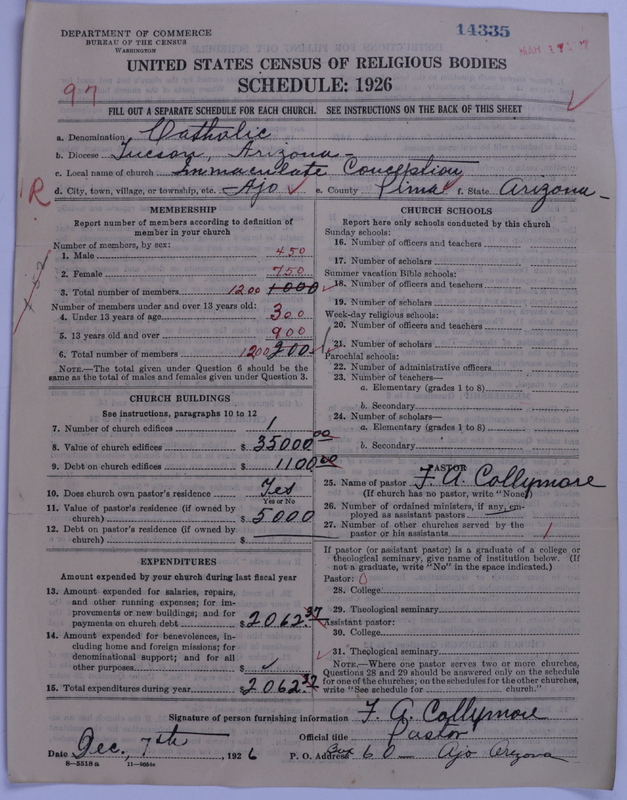 DEPARTMENT OF COMMERCE
BUREAU OF THE CENSUS
WASHINGTON
14335
UNITED STATES CENSUS OF RELIGIOUS BODIES
SCHEDULE: 1926
97
FILL OUT A SEPARATE SCHEDULE FOR EACH CHURCH. SEE INSTRUCTIONS ON THE BACK OF THIS SHEET
a. Denomination Catholic
b. Diocese Tucson, Arizona-
c. Local name of church Immaculate Conception
R
d. City, town, village, or township, etc. Ajo e. County Pima f. State Arizona-
MEMBERSHIP
Report number of members according to definition of member in your church
Number of members, by sex:
1. Male 450
2. Female 750
3. Total number of members 1200 1000
Number of members under and over 13 years old:
4. Under 13 years of age 300
5. 13 years old and over 900
6. Total number of members 1200 200
NOTE.—The total given under Question 6 should be
same as the total of males and females given under Question 3.
CHURCH BUILDINGS
See instructions, paragraphs 10 to 12
7. Number of church edifices 1
8. Value of church edifices $ 35000 00
9. Debt on church edifices $ 1100 00
10. Does church own pastor's residence Yes
Yes or No
11. Value of pastor's residence (if owned by
church) $ 5000
12. Debt on pastor's residence (if owned by
church) $
EXPENDITURES
Amount expended by your church during last fiscal year
13. Amount expended for salaries, repairs,
and other running expenses; for im-
provements or new buildings; and for
payments on church debt $ 2062.37
14. Amount expended for benevolences, in-
cluding home and foreign missions; for
denominational support; and for all
other purposes $
15. Total expenditures during year $ 2062.37
CHURCH SCHOOLS
Report here only schools conducted by this church
Sunday schools:
16. Number of officers and teachers
17. Number of scholars
Summer vacation Bible schools:
18. Number of officers and teachers
19. Number of scholars
Week-day religious schools:
20. Number of officers and teachers
21. Number of scholars
Parochial schools:
22. Number of administrative officers
23. Number of teachers—
a. Elementary (grades 1 to 8)
b. Secondary
24. Number of scholars—
a. Elementary (grades 1 to 8)
b. Secondary
PASTOR
25. Name of pastor F. A. Collymore
(If church has no pastor, write "None")
26. Number of ordained ministers, if any, em-
ployed as assistant pastors
27. Number of other churches served by the
pastor or his assistants 1
If pastor (or assistant pastor) is a graduate of a college or
theological seminary, give name of institution below. (If
not a graduate, write "No" in the space indicated.)
Pastor: 0
28. College
29. Theological seminary
Assistant pastor:
30. College
31. Theological seminary
NOTE.—Where one pastor serves two or more churches,
Questions 28 and 29 should be answered only on the schedule
for one of the churches; on the schedules for the other churches,
write "See schedule for church."
Signature of person furnishing information F. A. Collymore
Official title Pastor
Date Dec., 7th, 1926 P. O. Address Box 60- Ajo Arizona
8-5518a 11-9054c